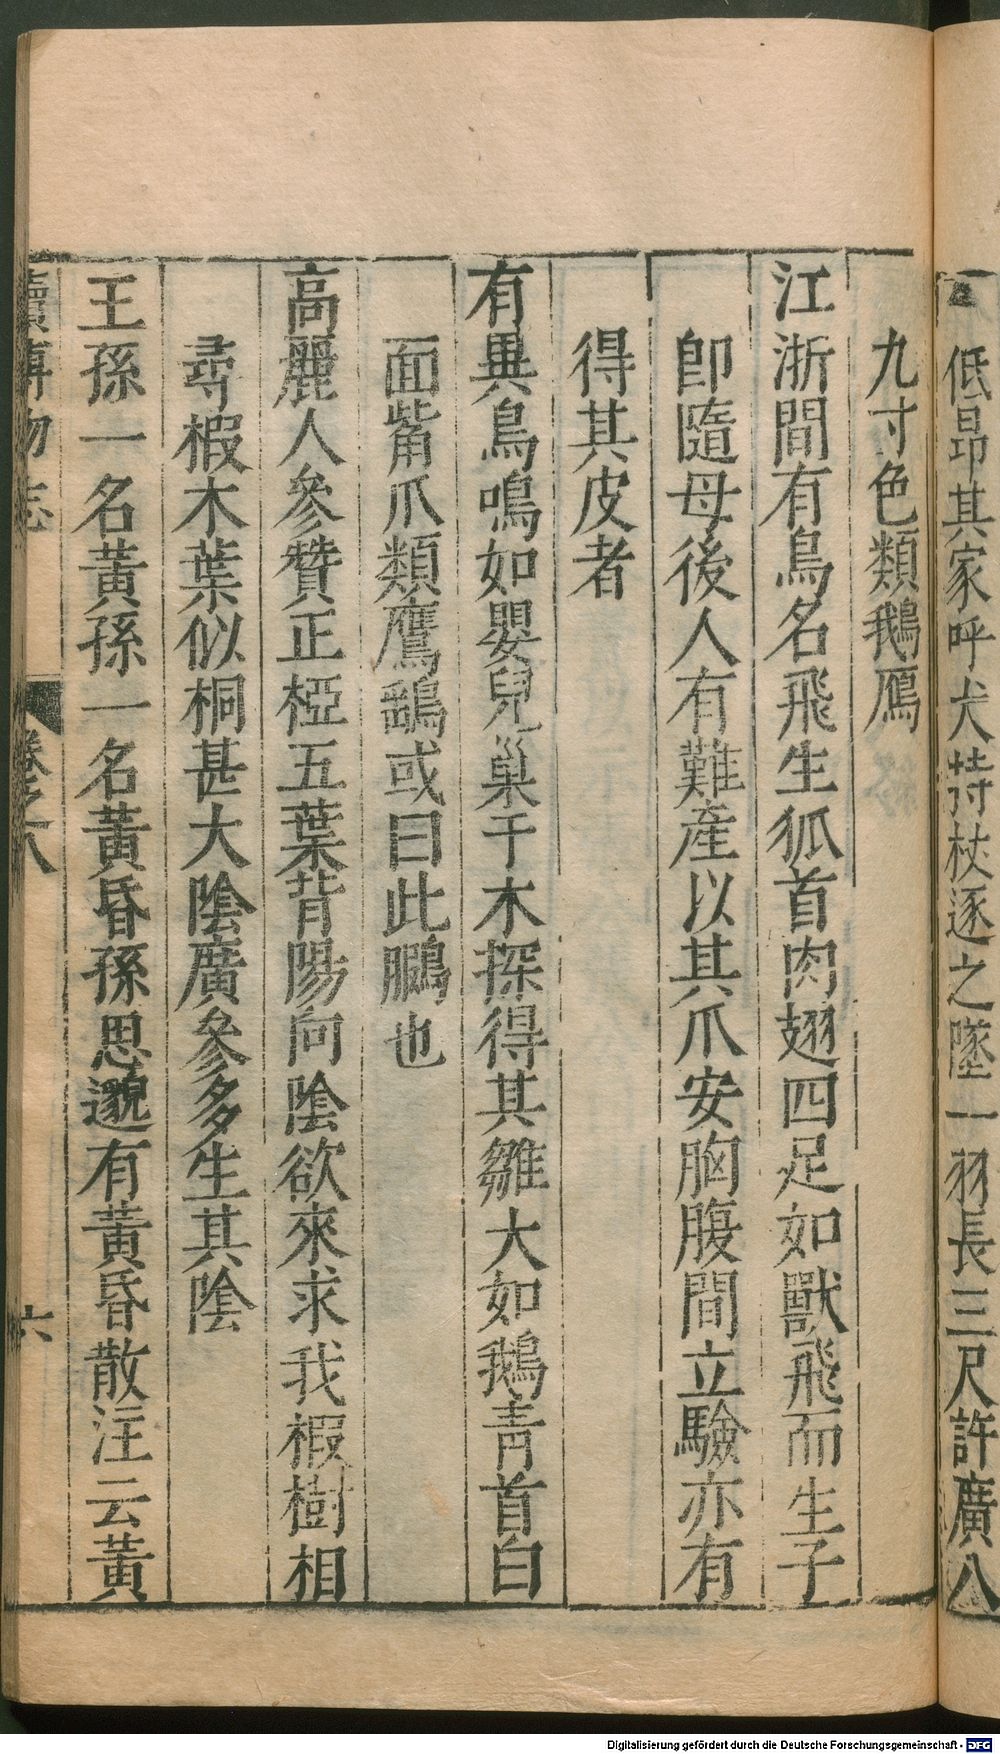 低昂其家呼犬持杖逐之墜一羽長三尺許廣八
九寸色類鵝鴈
江浙間有鳥名飛生狐首肉翅四足如獸飛而生子
卽隨母後人有難產以其爪安胸腹間立驗亦有
得其皮者
有異鳥鳴如嬰兒巢于木探得其雛大如鵝青首白
面觜爪類鷹鷂或曰此鵩也
高麗人參贊正椏五葉背陽向陰欲來求我椵樹相
尋椵木葉似桐甚大陰廣參多生其陰
王孫一名黃孫一名黃昏孫思邈有黃昏散注云黃
續博物志 卷之八 六
Digitalisierung gefördert durch die Deutsche Forschungsgemeinschaft - DFG